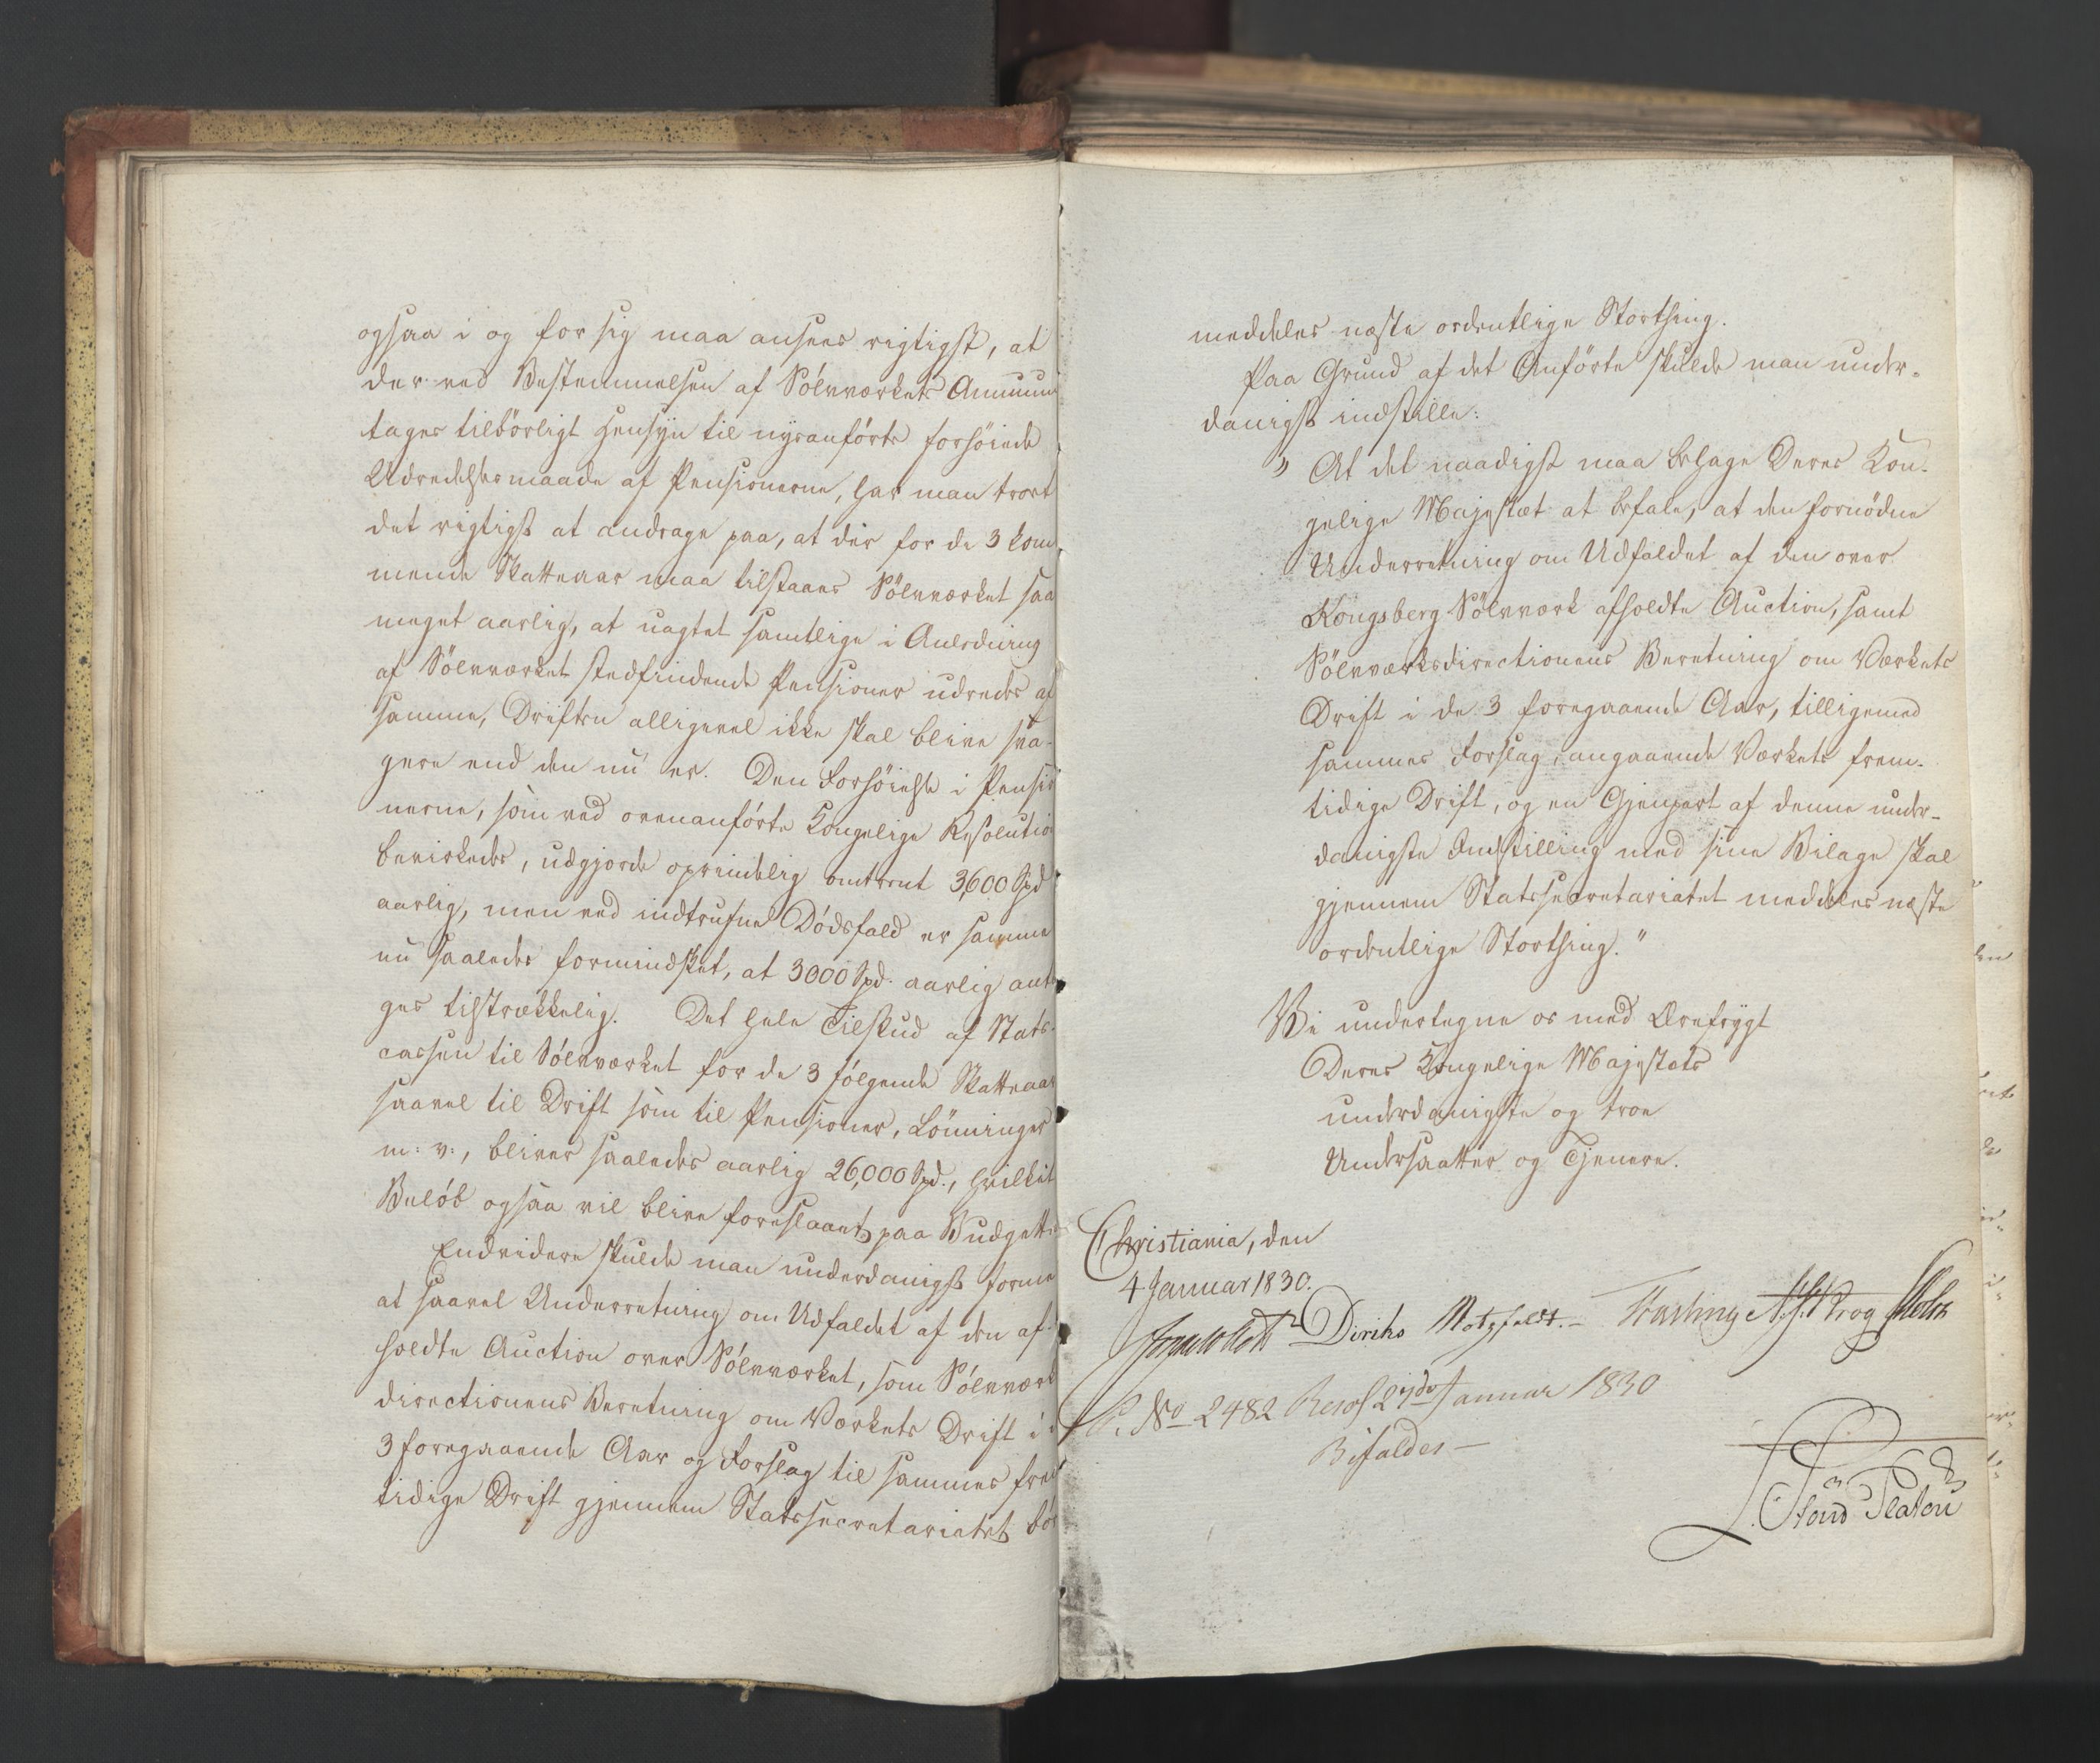 ogsaa i og for sig maa ansees rigtigst, at
der ved Bestemmelsen af Sölvværkets Annuum
tages tilbörligt Hensyn til nysanförte forhöiede
Udredelsesmaade af Pensionerne, har man troet
det rigtigst at andrage paa, at der for de 3 kom
mende Skatteaar maa tilstaaes Sölvværket saa
meget aarlig, at uagtet samtlige i Anledning
af Sölvværket stedfindende Pensioner udredes af
samme, Driften alligevel ikke skal blive sva-
gere end den nu er. Den Forhöielse i Pensio
nerne, som ved ovenanförte Kongelige Resolution
bevirkedes, udgjorde oprindelig omtrent 3,600 Spd
aarlig, men ved indtrufne Dödsfald er samme
nu saaledes formindsket, at 3000 Spd. aarlig anta
ges tilstrækkelig. Det hele Tilskud af Stats-
cassen til Sölvværket for de 3 fölgende Skatteaar
saavel til Drift som til Pensioner, Lönninger
m: v:, bliver saaledes aarlig 26,000 Spd., hvilket
Belöb ogsaa vil blive foreslaaet paa Budgettet.
Endvidere skulde man underdanigst forme
at saavel Underretning om Udfaldet af den af-
holdte Auction over Sölvværket, som Sölvværks
directionens Beretning om Værkets Drift i
3 foregaaende Aar og Forslag til sammes frem
tidige Drift gjennem Statssecretariatet bör
meddeles næste ordentlige Storthing.
Paa Grund af det Anförte skulde man under-
danigst indstille:
" At det naadigst maa behage Deres Kon-
gelige Majestæt at befale, at den fornödne
Underretning om Udfaldet af den over
Kongsberg Sölvværk afholdte Auction, samt
Sölvværksdirectionens Beretning om Værkets
Drift i de 3 foregaaende Aar, tilligemed
sammes Forslag, angaaende Værkets frem-
tidige Drift, og en Gjenpart af denne under-
danigste Indstilling med sine Bilage skal
gjennem Statssecretariatet meddeles næste
ordentlige Storthing."
Vi undertegne os med Ærefrygt
Deres Kongelige Majestæts
underdanigste og troe
Undersaatter og Tjenere.
Christiania, den
4 Januar 1830.
Jonas Collett Diriks Motzfeldt. Fasting Krog Holst
P. No 2482 Resol 27de Januar 1830
Bifaldes
Stoud Platou